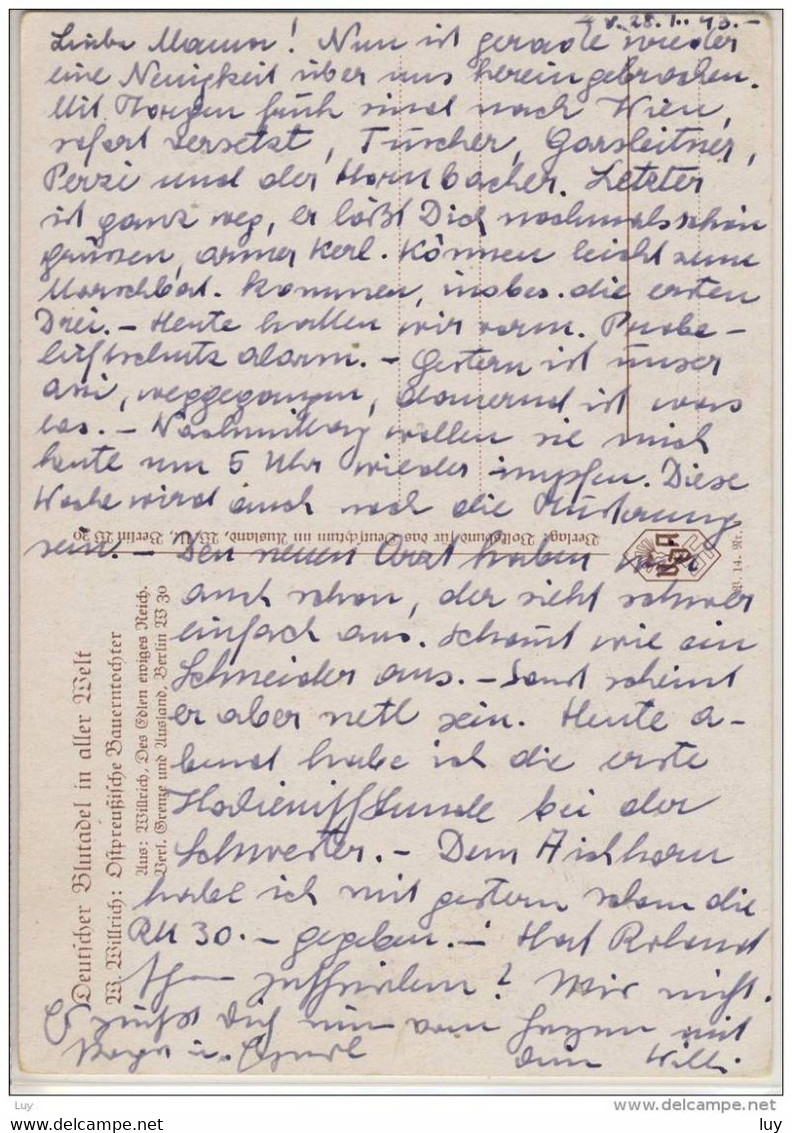 v. 28. I. 43. –
Liebe Mama! Nun ist gerade wieder
eine Neuigkeit über uns hereingebrochen.
Mit Morgen früh sind nach Wien,
sofort versetzt, Tuscher, Garsleitner,
Perzi und der Hornbacher. Letzter
ist ganz weg, er läßt Dich nochmals schön
grüssen, armer Kerl. Können leicht zum
Marschbat. kommen, insbes. die ersten
Drei. – Heute hatten wir vorm. Probe-
luftschutzalarm. – Gestern ist unser
weggegangen, dauernd ist was
los. – Nachmittag wollen sie mich
heute um 5 Uhr wieder impfen. Diese
Woche wird auch noch die Musterung
sein. – Den neuen Arzt haben wir
auch schon, der sieht schwer
einfach aus. Schaut wie ein
Schneider aus. – Sonst scheint
er aber nett sein. Heute a-
bend habe ich die erste
bei der
Schwester. – Dem Aichhorn
habe ich mit gestern schon die
RM 30. – gegeben. – Hat Roland
zufrieden? Wir nicht.
Es grüßt Dich nun vom Herzen mit
u. dein Willi
Verlag: Volksbund für das Deutschtum im Ausland, Berlin W 30
VDA
W. 14. Nr.
Deutscher Blutadel in aller Welt
W. Willrich: Ostpreußische Bauerntochter
Aus: Willrich, Des Edlen ewiges Reich.
Verl. Grenze und Ausland, Berlin W 30
Luy
delcampe.net
luy
Luy
luy